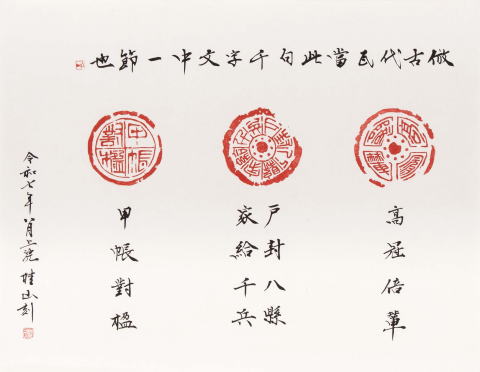 倣古代瓦當此句千字文中一節也
高冠陪輦
戶封八縣
家給千兵
甲帳對楹
令和七年八月上浣 桂山刻